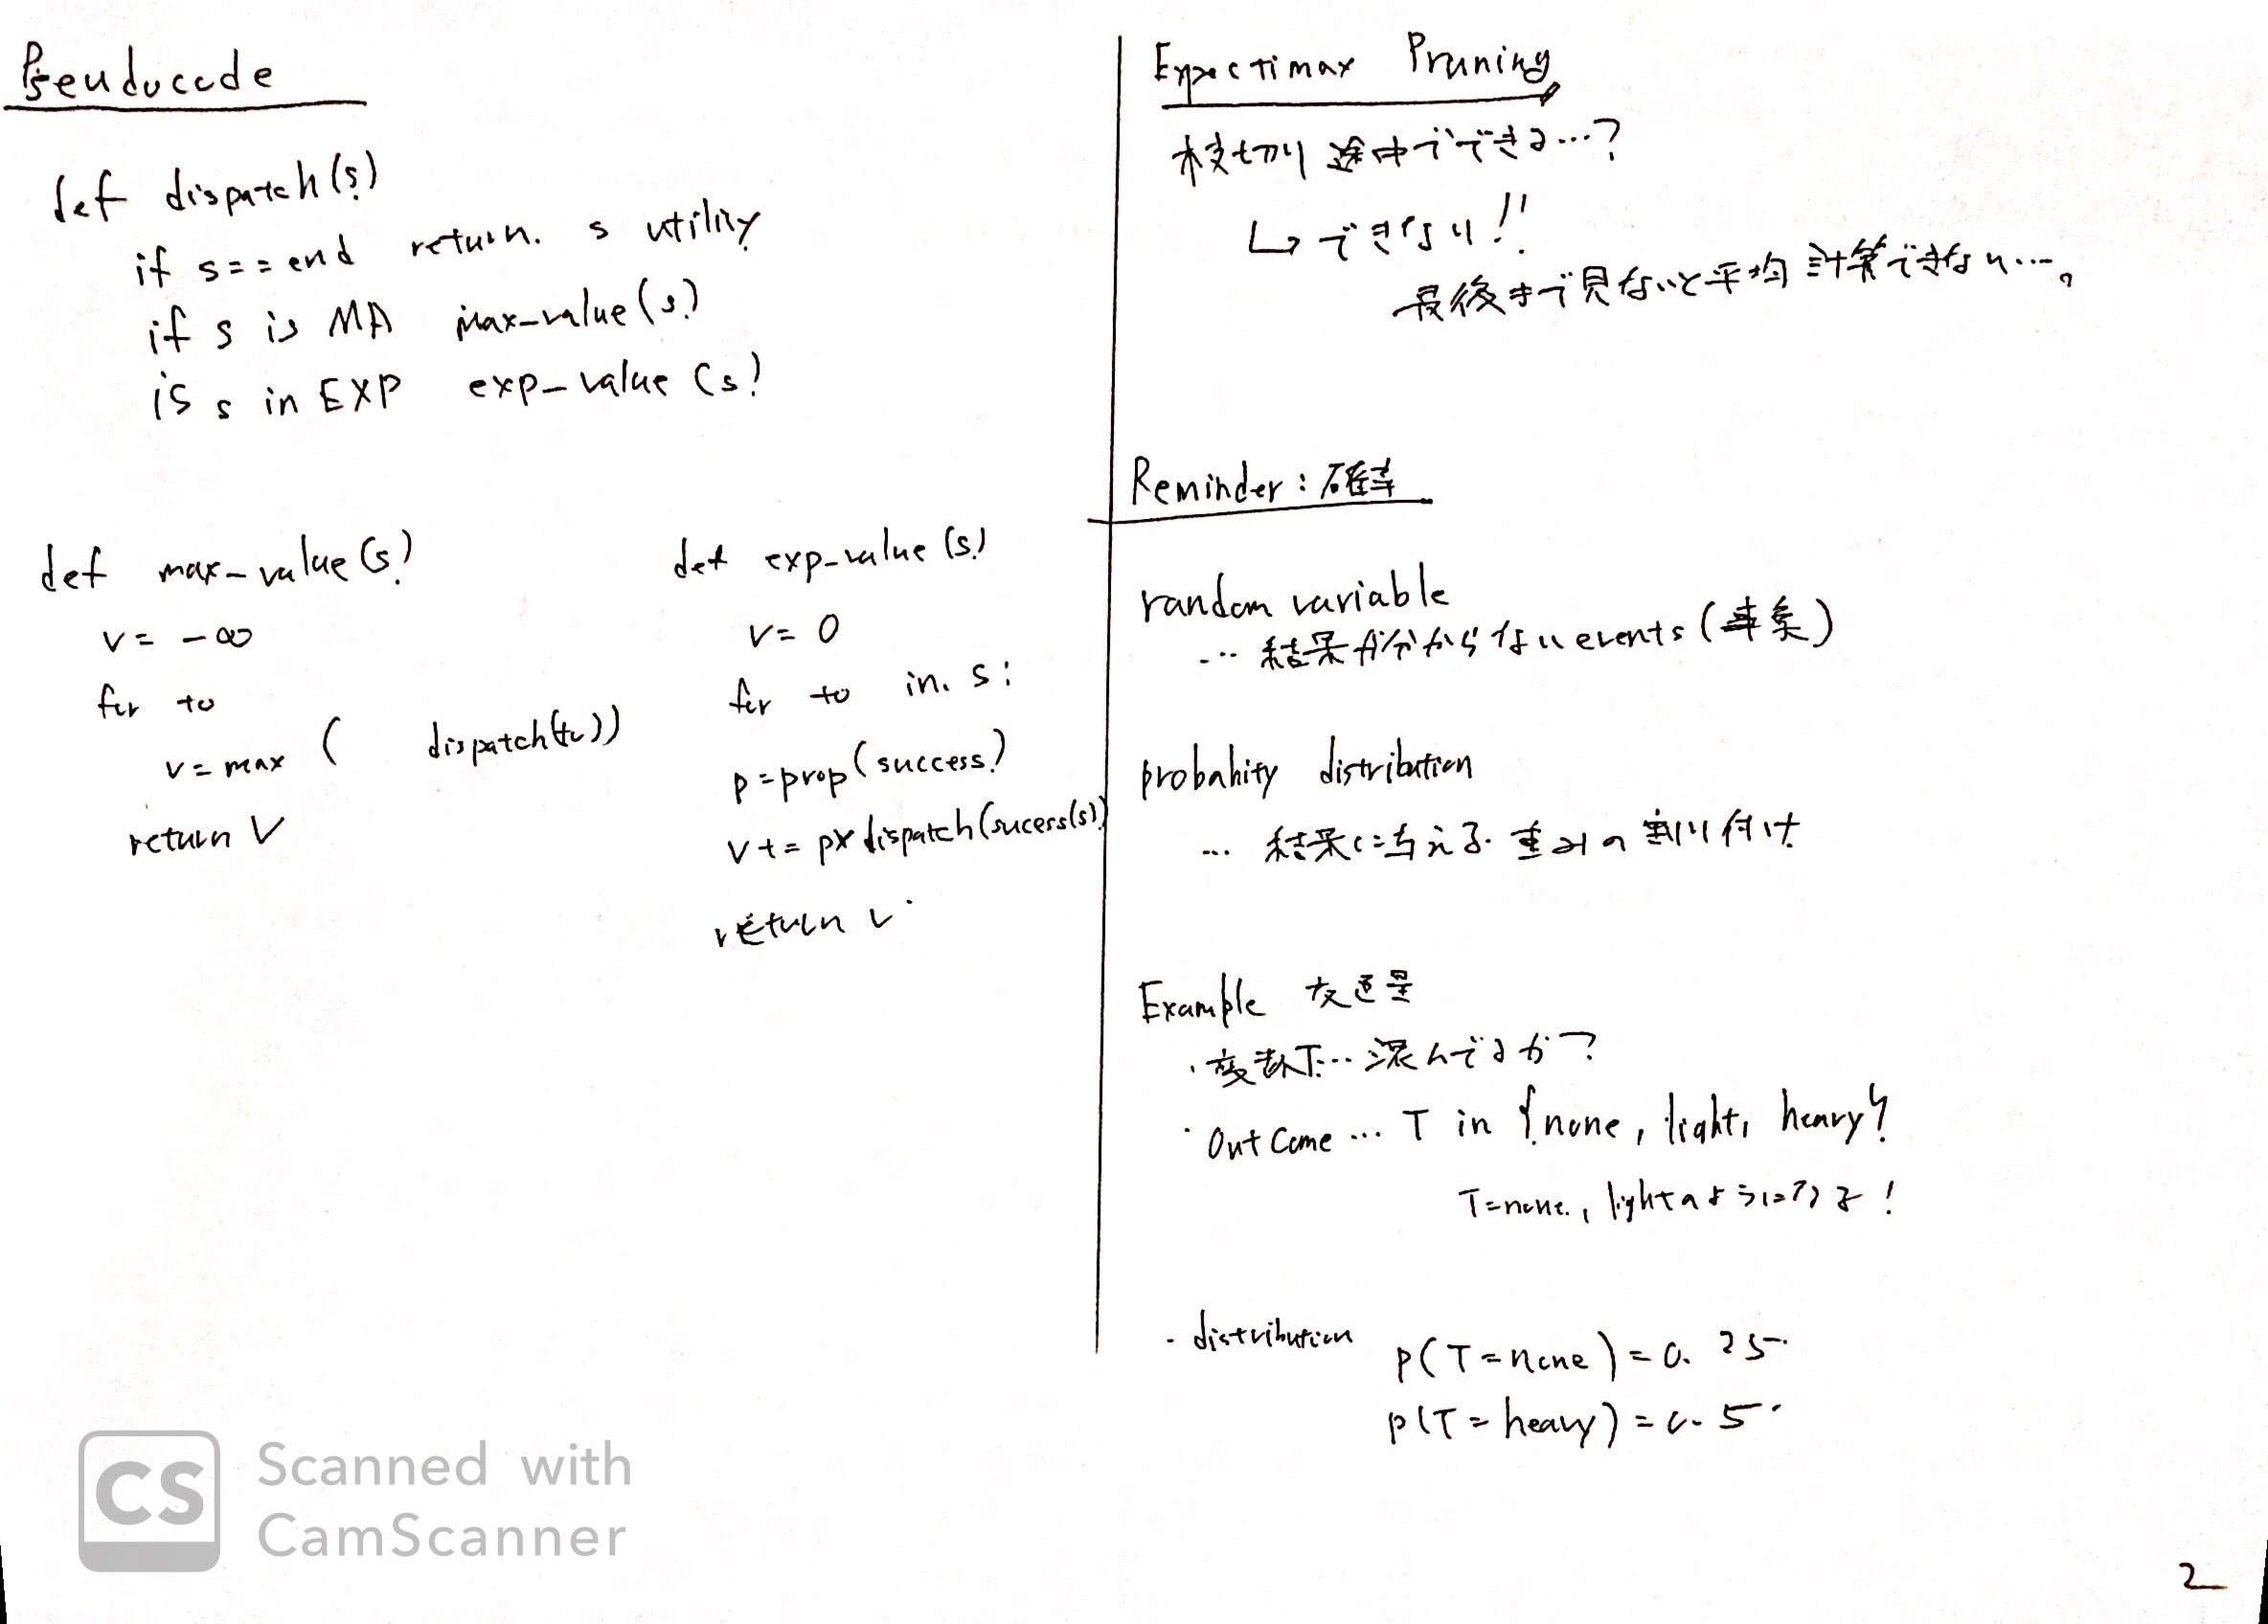 Pseudocode
def dispatch(s)
if s==end return. s utility
if s is MA max-value(s)
is s in EXP exp-value(s)
def max-value(s)
v = -∞
for to
v = max ( dispatch(to))
return V
def exp-value(s)
v = 0
for to in. s:
p = prop(success)
v += p× dispatch(sucess(s))
return v
Expectimax Pruning
枝切り 途中でできる…?
↳ できない!!
最後まで見ないと平均計算できない…。
Reminder : 確率
random variable
… 結果が分からない events (事象)
probability distribution
… 結果に与える 重みの割り付け
Example 交通量
・変数T… 混んでるか?
・Out Come … T in {none, light, heavy}
T=none., lightのようになる!
・distribution
P(T=none) = 0.25
P(T=heavy) = 0.5
Scanned with
CamScanner
CS
2